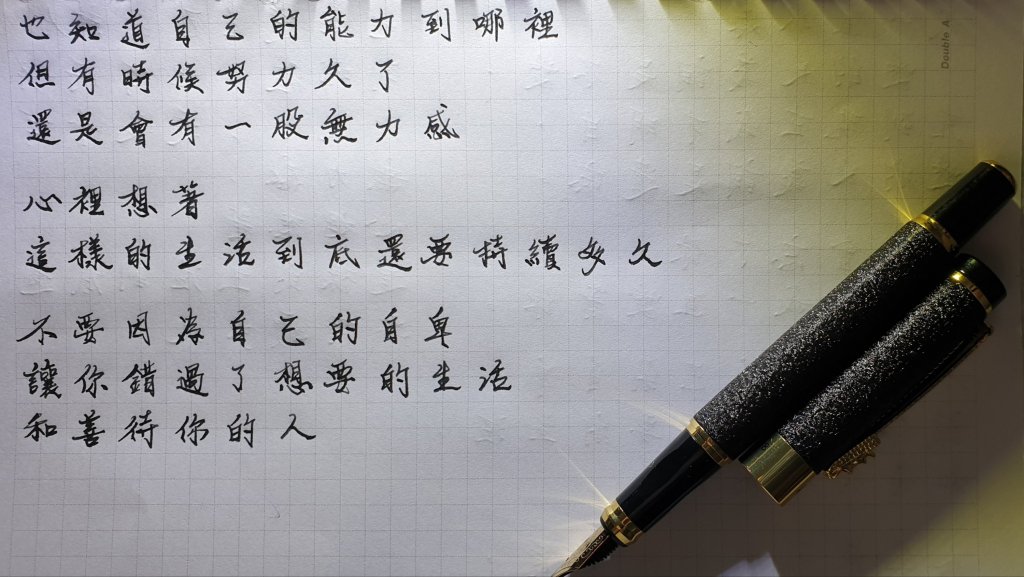 也知道自己的能力到哪裡
但有時候努力久了
還是會有一股無力感
心裡想著
這樣的生活到底還要持續多久
不要因為自己的自卑
讓你錯過了想要的生活
和善待你的人
Double A